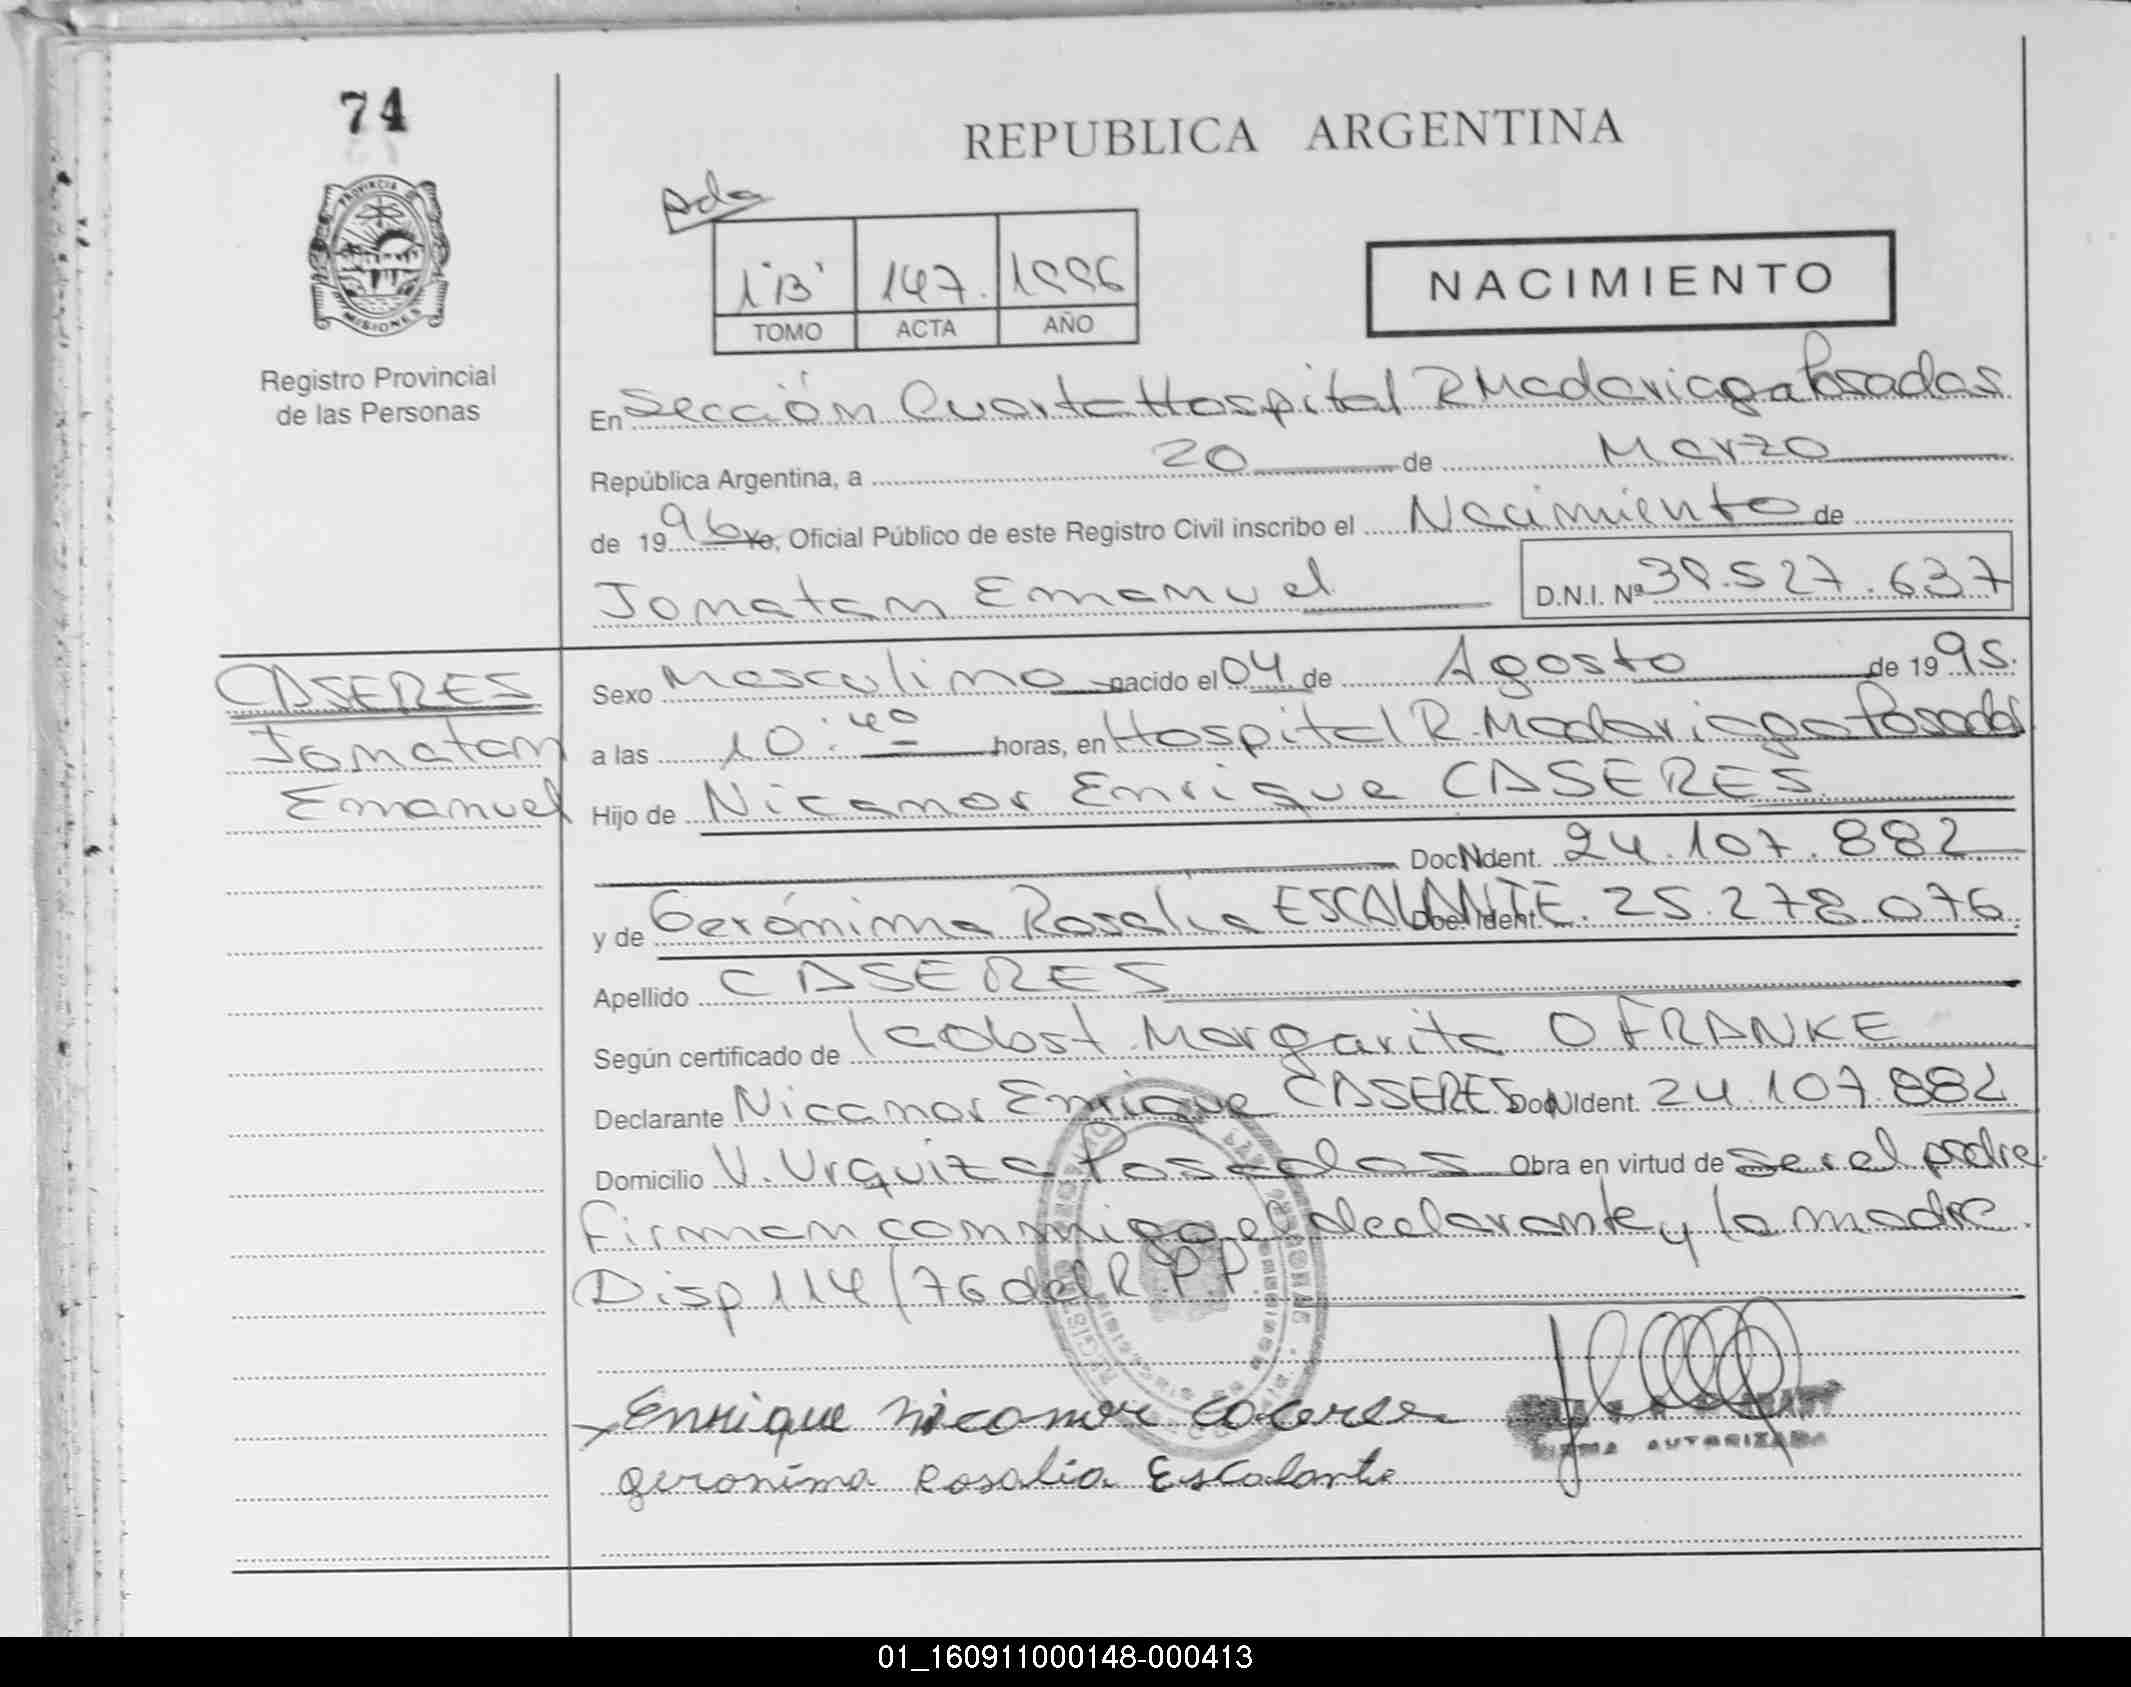 74
REPUBLICA ARGENTINA
PROVINCIA DE
MISIONES
Registro Provincial
de las Personas
1 "B" 147. 1996
TOMO ACTA AÑO
NACIMIENTO
En Sección Cuarta Hospital R Madariaga Posadas
República Argentina, a 20 de Marzo
de 1996 Yo, Oficial Público de este Registro Civil inscribo el Nacimiento de
Jonatan Emanuel D.N.I. Nº 39.527.637
CASERES
Jonatan
Emanuel
Sexo Masculino nacido el 04 de Agosto de 1995.
a las 10:40 horas, en Hospital R. Madariaga Posadas
Hijo de Nicanor Enrique CASERES
Doc N Ident. 24.107.882
y de Gerónima Rosalia ESCALANTE Doc. Ident. 25.278.076
Apellido CASERES
Según certificado de Margarita O FRANKE
Declarante Nicanor Enrique CASERES Doc N Ident. 24.107.882
Domicilio V. Urquiza Posadas Obra en virtud de ser el padre
firman conmigo el declarante y la madre.
Disp 114/76 del R.P.P.
Enrique nicanor
geronima Rosalia Escalante
FIRMA AUTORIZADA
01_160911000148-000413